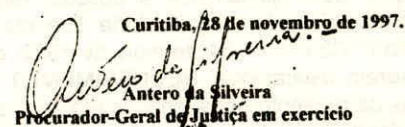 Curitiba, 28 de novembro de 1997.
Antero da Silveira
Antero da Silveira
Procurador-Geral de Justiça em exercício